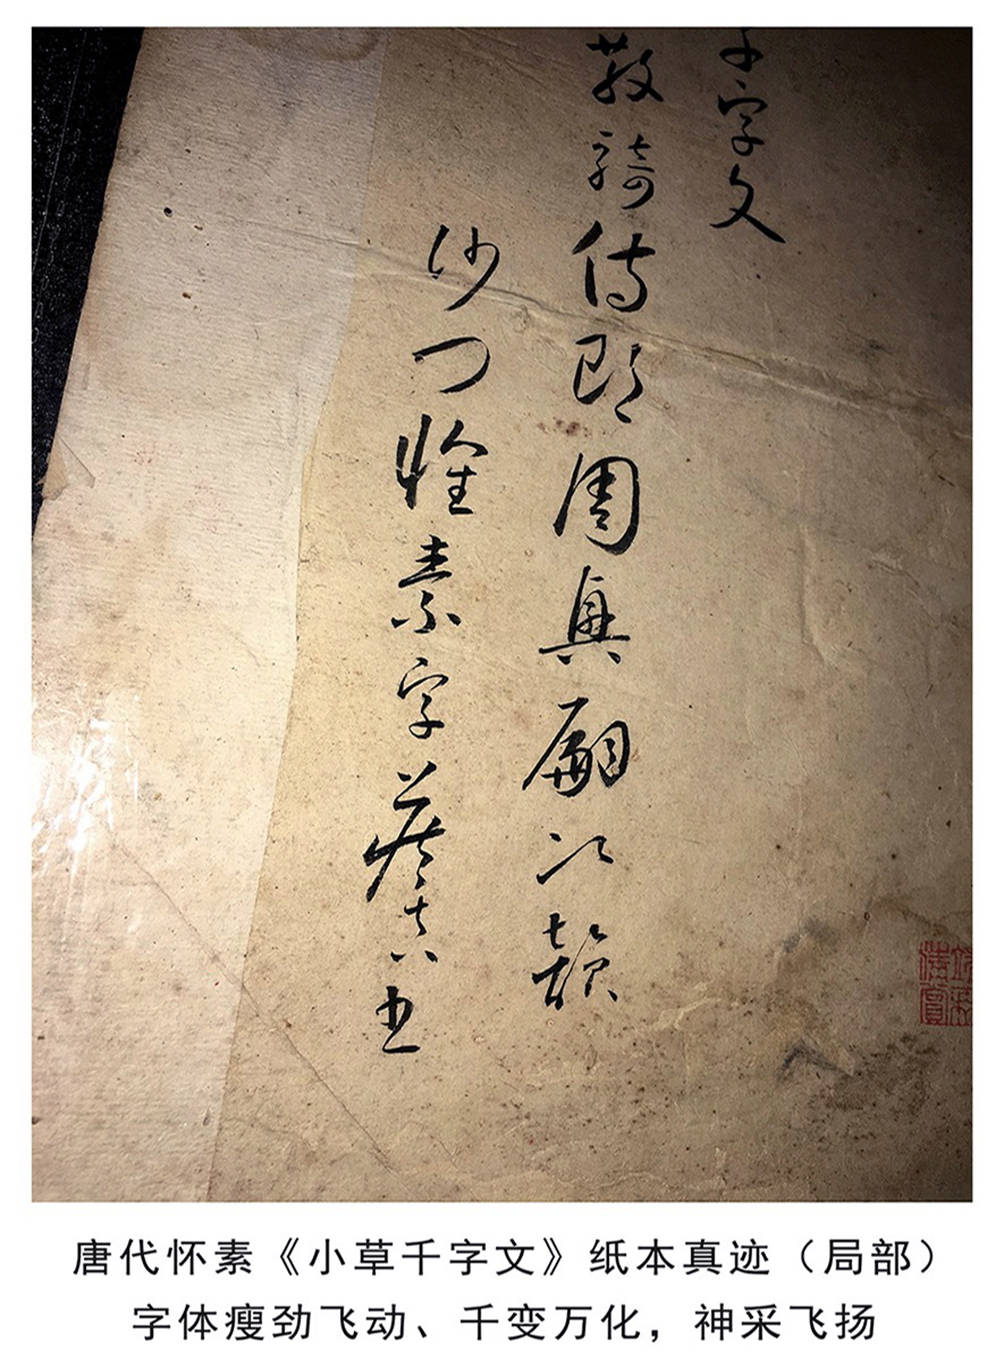 千字文
散騎侍郎周興嗣次韻
沙門懷素字藏真書
唐代怀素《小草千字文》纸本真迹（局部）
字体瘦劲飞动、千变万化，神采飞扬